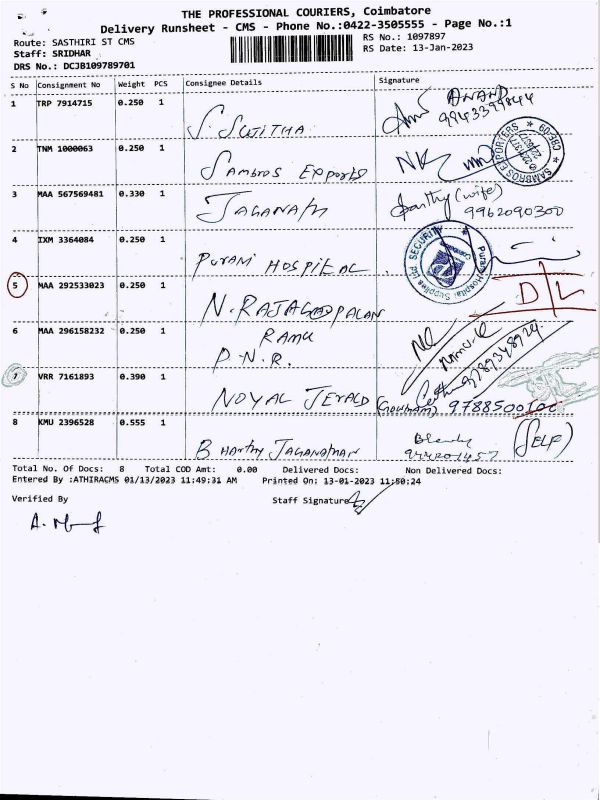 THE PROFESSIONAL COURIERS, Coimbatore
Delivery Runsheet - CMS - Phone No.:0422-3505555 - Page No.:1
Route: SASTHIRI ST CMS
RS No.: 1097897
Staff: SRIDHAR
RS Date: 13-Jan-2023
DRS No.: DCJB109789701
S No Consignment No Weight PCS Consignee Details Signature
1 TRP 7914715 0.250 1 S. SUJITHA ANAND
2 TNM 1000063 0.250 1 SAMBROS EXPORTS
SAMBROS EXPORTERS
3 MAA 567569481 0.330 1 JAGANATH (wife)
9962090300
4 IXM 3364084 0.250 1 PURANI HOSPITAL
SECURITY
Purani Hospital Supplies
5 MAA 292533023 0.250 1 N. RAJAGOPALAN D/L
6 MAA 296158232 0.250 1 RAMU
P.N.R.
9789348924
7 VRR 7161893 0.390 1 NOYAL JERALD (GOWTHAM) 9788500
8 KMU 2396528 0.555 1 BHARTHY JAGANATHAN (SELF)
Total No. Of Docs: 8 Total COD Amt: 0.00 Delivered Docs: Non Delivered Docs:
Entered By :ATHIRACMS 01/13/2023 11:49:31 AM Printed On: 13-01-2023 11:50:24
Verified By Staff Signature